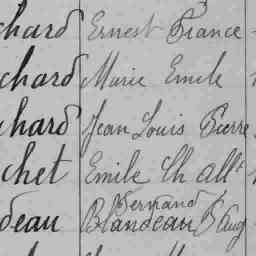 chard Ernest France
chard Marie Emile
chard Jean Louis Pierre
chet Emile Ch allt
Fernand
deau Blandeau Aug